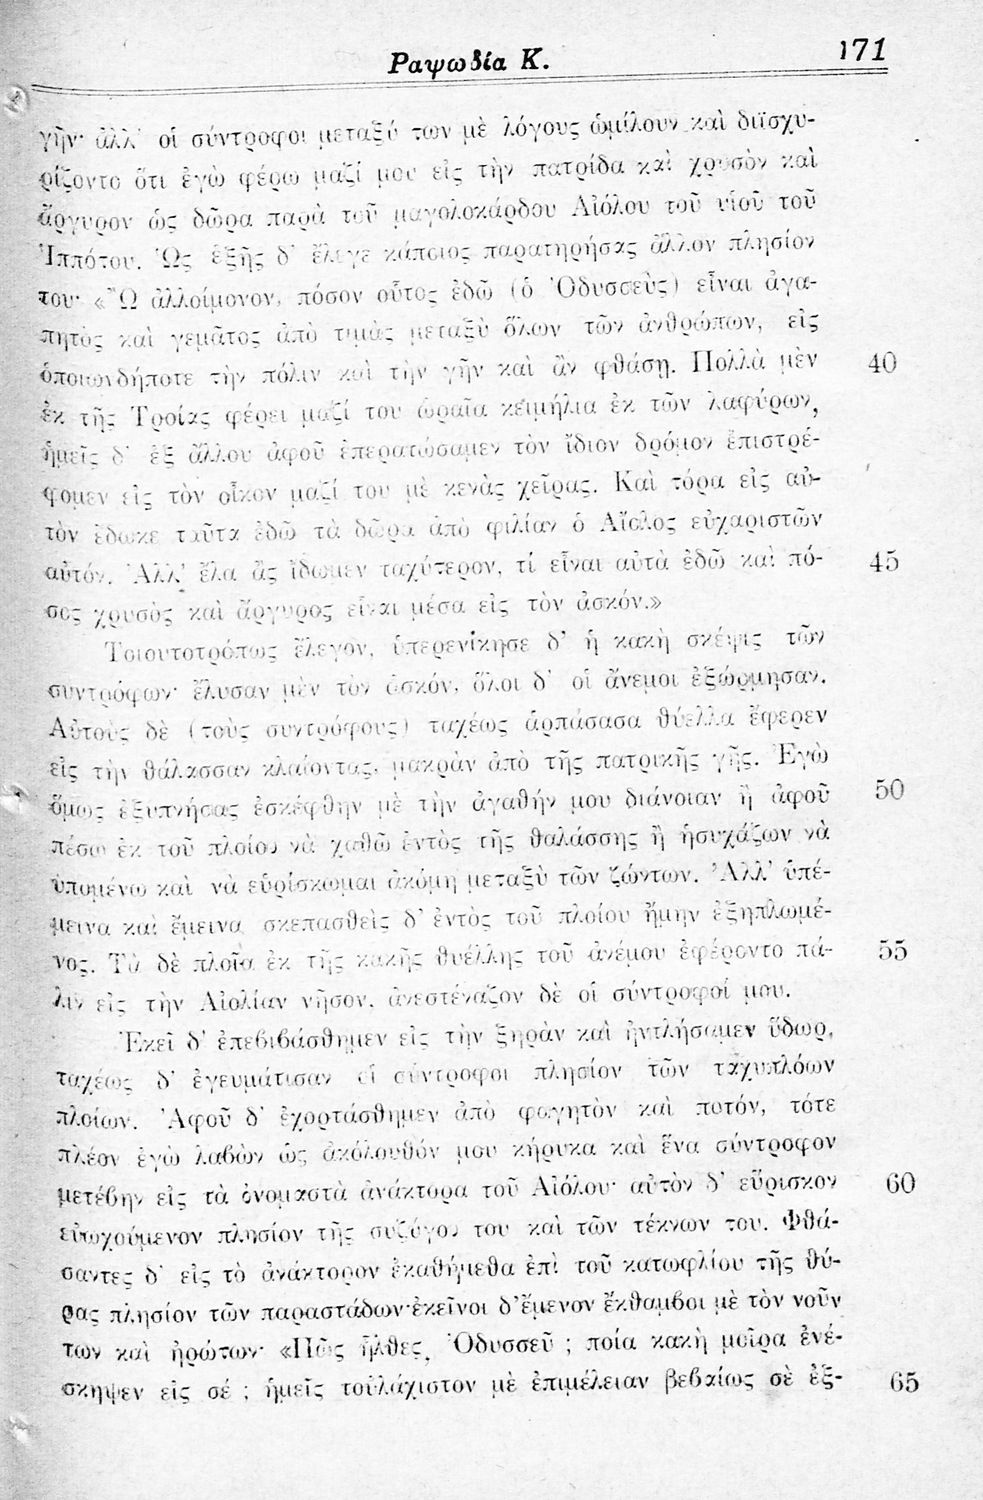 Ραψωδία Κ. 171
γῆν· ἀλλ' οἱ σύντροφοι μεταξύ των μὲ λόγους ὡμίλουν καὶ διϊσχυ-
ρίζοντο ὅτι ἐγὼ φέρω μαζί μου εἰς τὴν πατρίδα καὶ χρυσὸν καὶ
ἄργυρον ὡς δῶρα παρὰ τοῦ μαγολοκάρδου Αἰόλου τοῦ υἱοῦ τοῦ
Ἱππότου. Ὡς ἑξῆς δ' ἔλεγε κάποιος παρατηρήσας ἄλλον πλησίον
του· «Ὢ ἀλλοίμονον, πόσον οὗτος ἐδῶ (ὁ Ὀδυσσεὺς) εἶναι ἀγα-
πητὸς καὶ γεμᾶτος ἀπὸ τιμὰς μεταξὺ ὅλων τῶν ἀνθρώπων, εἰς
ὁποιωνδήποτε τὴν πόλιν καὶ τὴν γῆν καὶ ἂν φθάσῃ. Πολλὰ μὲν 40
ἐκ τῆς Τροίας φέρει μαζί του ὡραῖα κειμήλια ἐκ τῶν λαφύρων,
ἡμεῖς δ' ἐξ ἄλλου ἀφοῦ ἐπερατώσαμεν τὸν ἴδιον δρόμον ἐπιστρέ-
φομεν εἰς τὸν οἶκον μαζί του μὲ κενὰς χεῖρας. Καὶ τόρα εἰς αὐ-
τὸν ἔδωκε ταῦτα ἐδῶ τὰ δῶρα ἀπὸ φιλίαν ὁ Αἴολος εὐχαριστῶν
αὐτόν. Ἀλλ' ἔλα ἂς ἴδωμεν ταχύτερον, τί εἶναι αὐτὰ ἐδῶ καὶ πό- 45
σος χρυσὸς καὶ ἄργυρος εἶναι μέσα εἰς τὸν ἀσκόν.»
Τοιουτοτρόπως ἔλεγον, ὑπερενίκησε δ' ἡ κακὴ σκέψις τῶν
συντρόφων· ἔλυσαν μὲν τὸν ἀσκόν, ὅλοι δ' οἱ ἄνεμοι ἐξώρμησαν.
Αὐτοὺς δὲ (τοὺς συντρόφους) ταχέως ἁρπάσασα θύελλα ἔφερεν
εἰς τὴν θάλασσαν κλαίοντας, μακρὰν ἀπὸ τῆς πατρικῆς γῆς. Ἐγὼ
ὅμως ἐξυπνήσας ἐσκέφθην μὲ τὴν ἀγαθήν μου διάνοιαν ἢ ἀφοῦ 50
πέσω ἐκ τοῦ πλοίου νὰ χαθῶ ἐντὸς τῆς θαλάσσης ἢ ἡσυχάζων νὰ
ὑπομένω καὶ νὰ εὑρίσκωμαι ἀκόμη μεταξὺ τῶν ζώντων. Ἀλλ' ὑπέ-
μεινα καὶ ἔμεινα σκεπασθεὶς δ' ἐντὸς τοῦ πλοίου ἤμην ἐξηπλωμέ-
νος. Τὰ δὲ πλοῖα ἐκ τῆς κακῆς θυέλλης τοῦ ἀνέμου ἐφέροντο πά- 55
λιν εἰς τὴν Αἰολίαν νῆσον, ἀνεστέναζον δὲ οἱ σύντροφοί μου.
Ἐκεῖ δ' ἐπεβιβάσθημεν εἰς τὴν ξηρὰν καὶ ἠντλήσαμεν ὕδωρ,
ταχέως δ' ἐγευμάτισαν οἱ σύντροφοι πλησίον τῶν ταχυπλόων
πλοίων. Ἀφοῦ δ' ἐχορτάσθημεν ἀπὸ φαγητὸν καὶ ποτόν, τότε
πλέον ἐγὼ λαβὼν ὡς ἀκόλουθόν μου κήρυκα καὶ ἕνα σύντροφον
μετέβην εἰς τὰ ὀνομαστὰ ἀνάκτορα τοῦ Αἰόλου· αὐτὸν δ' εὕρισκον 60
εὐωχούμενον πλησίον τῆς συζύγου του καὶ τῶν τέκνων του. Φθά-
σαντες δ' εἰς τὸ ἀνάκτορον ἐκαθήμεθα ἐπὶ τοῦ κατωφλίου τῆς θύ-
ρας πλησίον τῶν παραστάδων·ἐκεῖνοι δ'ἔμενον ἔκθαμβοι μὲ τὸν νοῦν
των καὶ ἠρώτων· «Πῶς ἦλθες, Ὀδυσσεῦ ; ποία κακὴ μοῖρα ἐνέ-
σκηψεν εἰς σέ ; ἡμεῖς τοὐλάχιστον μὲ ἐπιμέλειαν βεβαίως σὲ ἐξ- 65